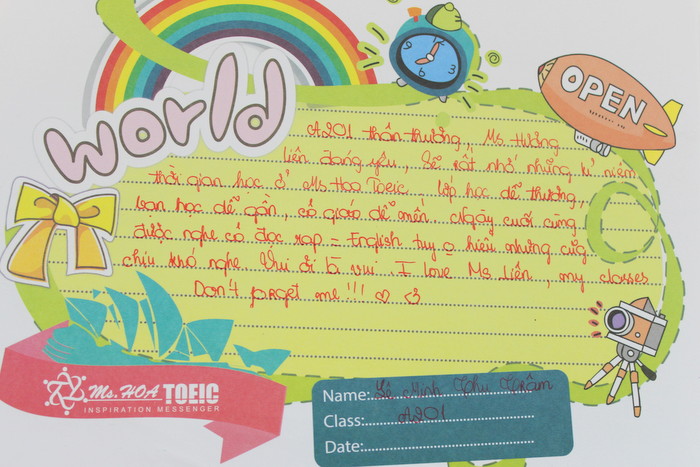 world
OPEN
A201 thân thương,, Ms Hương
Liên đáng yêu, Sẽ rất nhớ những kỉ niệm
thời gian học ở Ms Hoa Toeic. Lớp học dễ thương,
bạn học dễ gần, cô giáo dễ mến. Ngày cuối cùng
được nghe cô đọc rap = English tuy ko hiểu nhưng cũng
chịu khó nghe. Vui ơi là vui. I love Ms Liên, my classes
Don't forget me!!! ♡ <3
Ms. HOA TOEIC
INSPIRATION MESSENGER
Name: Lê Minh Thu Trâm
Class: A201
Date: